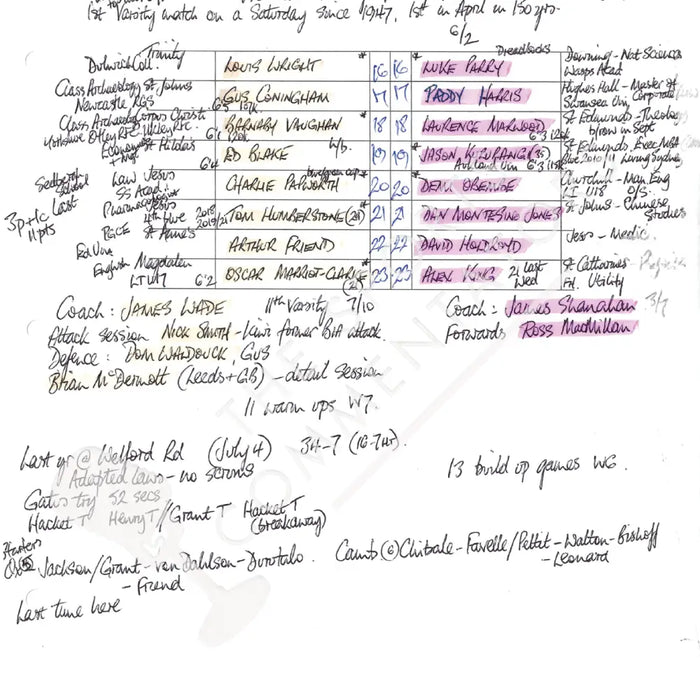 1st Varsity match on a Saturday since 1947, 1st in April in 150 yrs.
6/2
Dulwich Coll. Trinity LOUIS WRIGHT * 16 16 * LUKE PARRY Dreadlocks Downing - Nat Sciences
Wasps Acad
Class Archaeology St Johns GUS CONINGHAM 17 17 PADDY HARRIS Hughes Hall - Master of
Newcastle RGS Swansea Uni, Corporate
Class Archaeology Corpus Christi BARNABY VAUGHAN * 18 18 LAURENCE MARWOOD St Edmunds - Theology
Yorkshire Otley RFC 6'1 6'3
Economics St Hildas ED BLAKE 19 19 * JASON St Edmunds, Exec MBA
6'4 Auckland Uni 6'3 Blue 2010/11 Living Sydney
Sedbergh School Law Jesus CHARLIE PAPWORTH * 20 20 * Churchill - Man Eng
SS Acad. U18 O/S.
3p+1c 11pts Last Pharmacology Jesus
4th blue 2018 2019/21 TOM HUMBERSTONE (21) 21 21 BEN MONTESINO JONES St Johns - Chinese
Studies
PGCE St Anne's ARTHUR FRIEND 22 22 DAVID HOLDROYD Jesus - Medic.
Ed Uni
English Magdalen OSCAR MARRIOT-CLARKE * (21) 23 23 ALEX KING 21 last Wed St Catharines
LTU17 6'2 FH. Utility
Coach : JAMES WADE 11th Varsity 7/10 Coach : James Shanahan 3/7
Attack session NICK SMITH - Laws former BIA attack. Forwards Ross MacMillan
Defence : DOM WALDOUCK, GUS
Brian McDermott (Leeds+GB) - detail session
11 warm ups W7.
Last yr @ Welford Rd (July 4) 34-7 (16-7 HT). 13 build up games W6.
Adapted laws - no scrums
Gates try 52 secs
Hacket T Henry T / Grant T Hacket T
(breakaway)
Starters
Ox Jackson/Grant - von Dahlson - Durutalo. Camb Chibale - Favelle/Pettit - Walton - Bishoff
- Friend - Leonard
Last time here